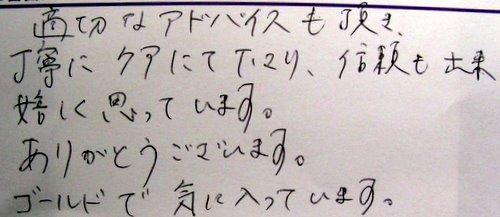 適切なアドバイスも頂き、
丁寧にケアして下さり、信頼も出来
嬉しく思っています。
ありがとうございます。
ゴールドで気に入っています。